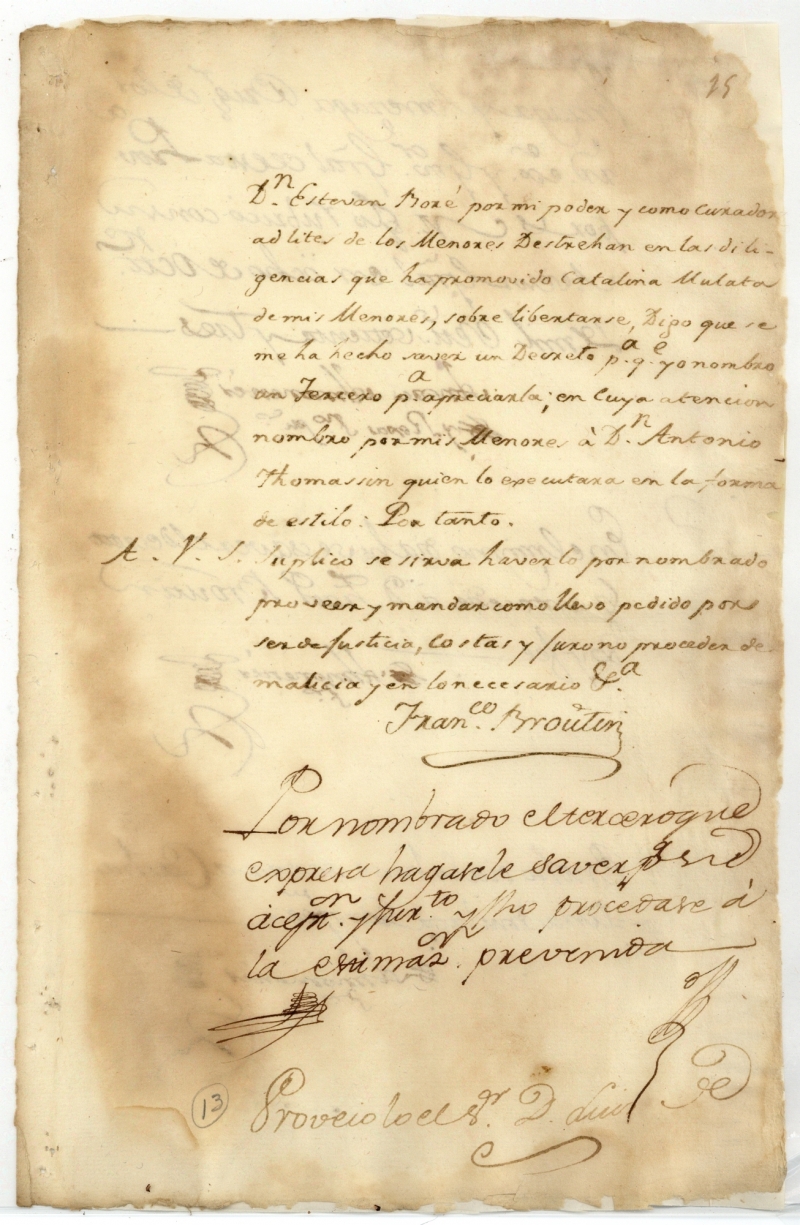 15
D.ⁿ Estevan Boré por mi poder y como Curador
ad lites de los Menores Destrehan en las dili-
gencias que ha promovido Catalina Mulata
de mis Menores, sobre libertarse, Digo que se
me ha hecho saver un Decreto p.ᵃ q.ᵉ yo nombre
un Tercero p.ᵃ apreciarla; en Cuya atencion
nombro por mis Menores à D.ⁿ Antonio
Thomassin quien lo executara en la forma
de estilo: Por tanto.
A. V. S. Suplico se sirva haverlo por nombrado
proveer y mandar como llevo pedido por
ser de Justicia, costas y Juro no proceder de
malicia y en lo necesario &.ᵃ
Fran.ᶜᵒ Broutin
Por nombrado el tercero que
expresa hagasele saver p.ᵃ su
acept.ᵒⁿ y Jur.ᵗᵒ y fho procedase à
la estimaz.ᵒⁿ prevenida
13
Proveiolo el S.ᵒʳ D. Luis
de